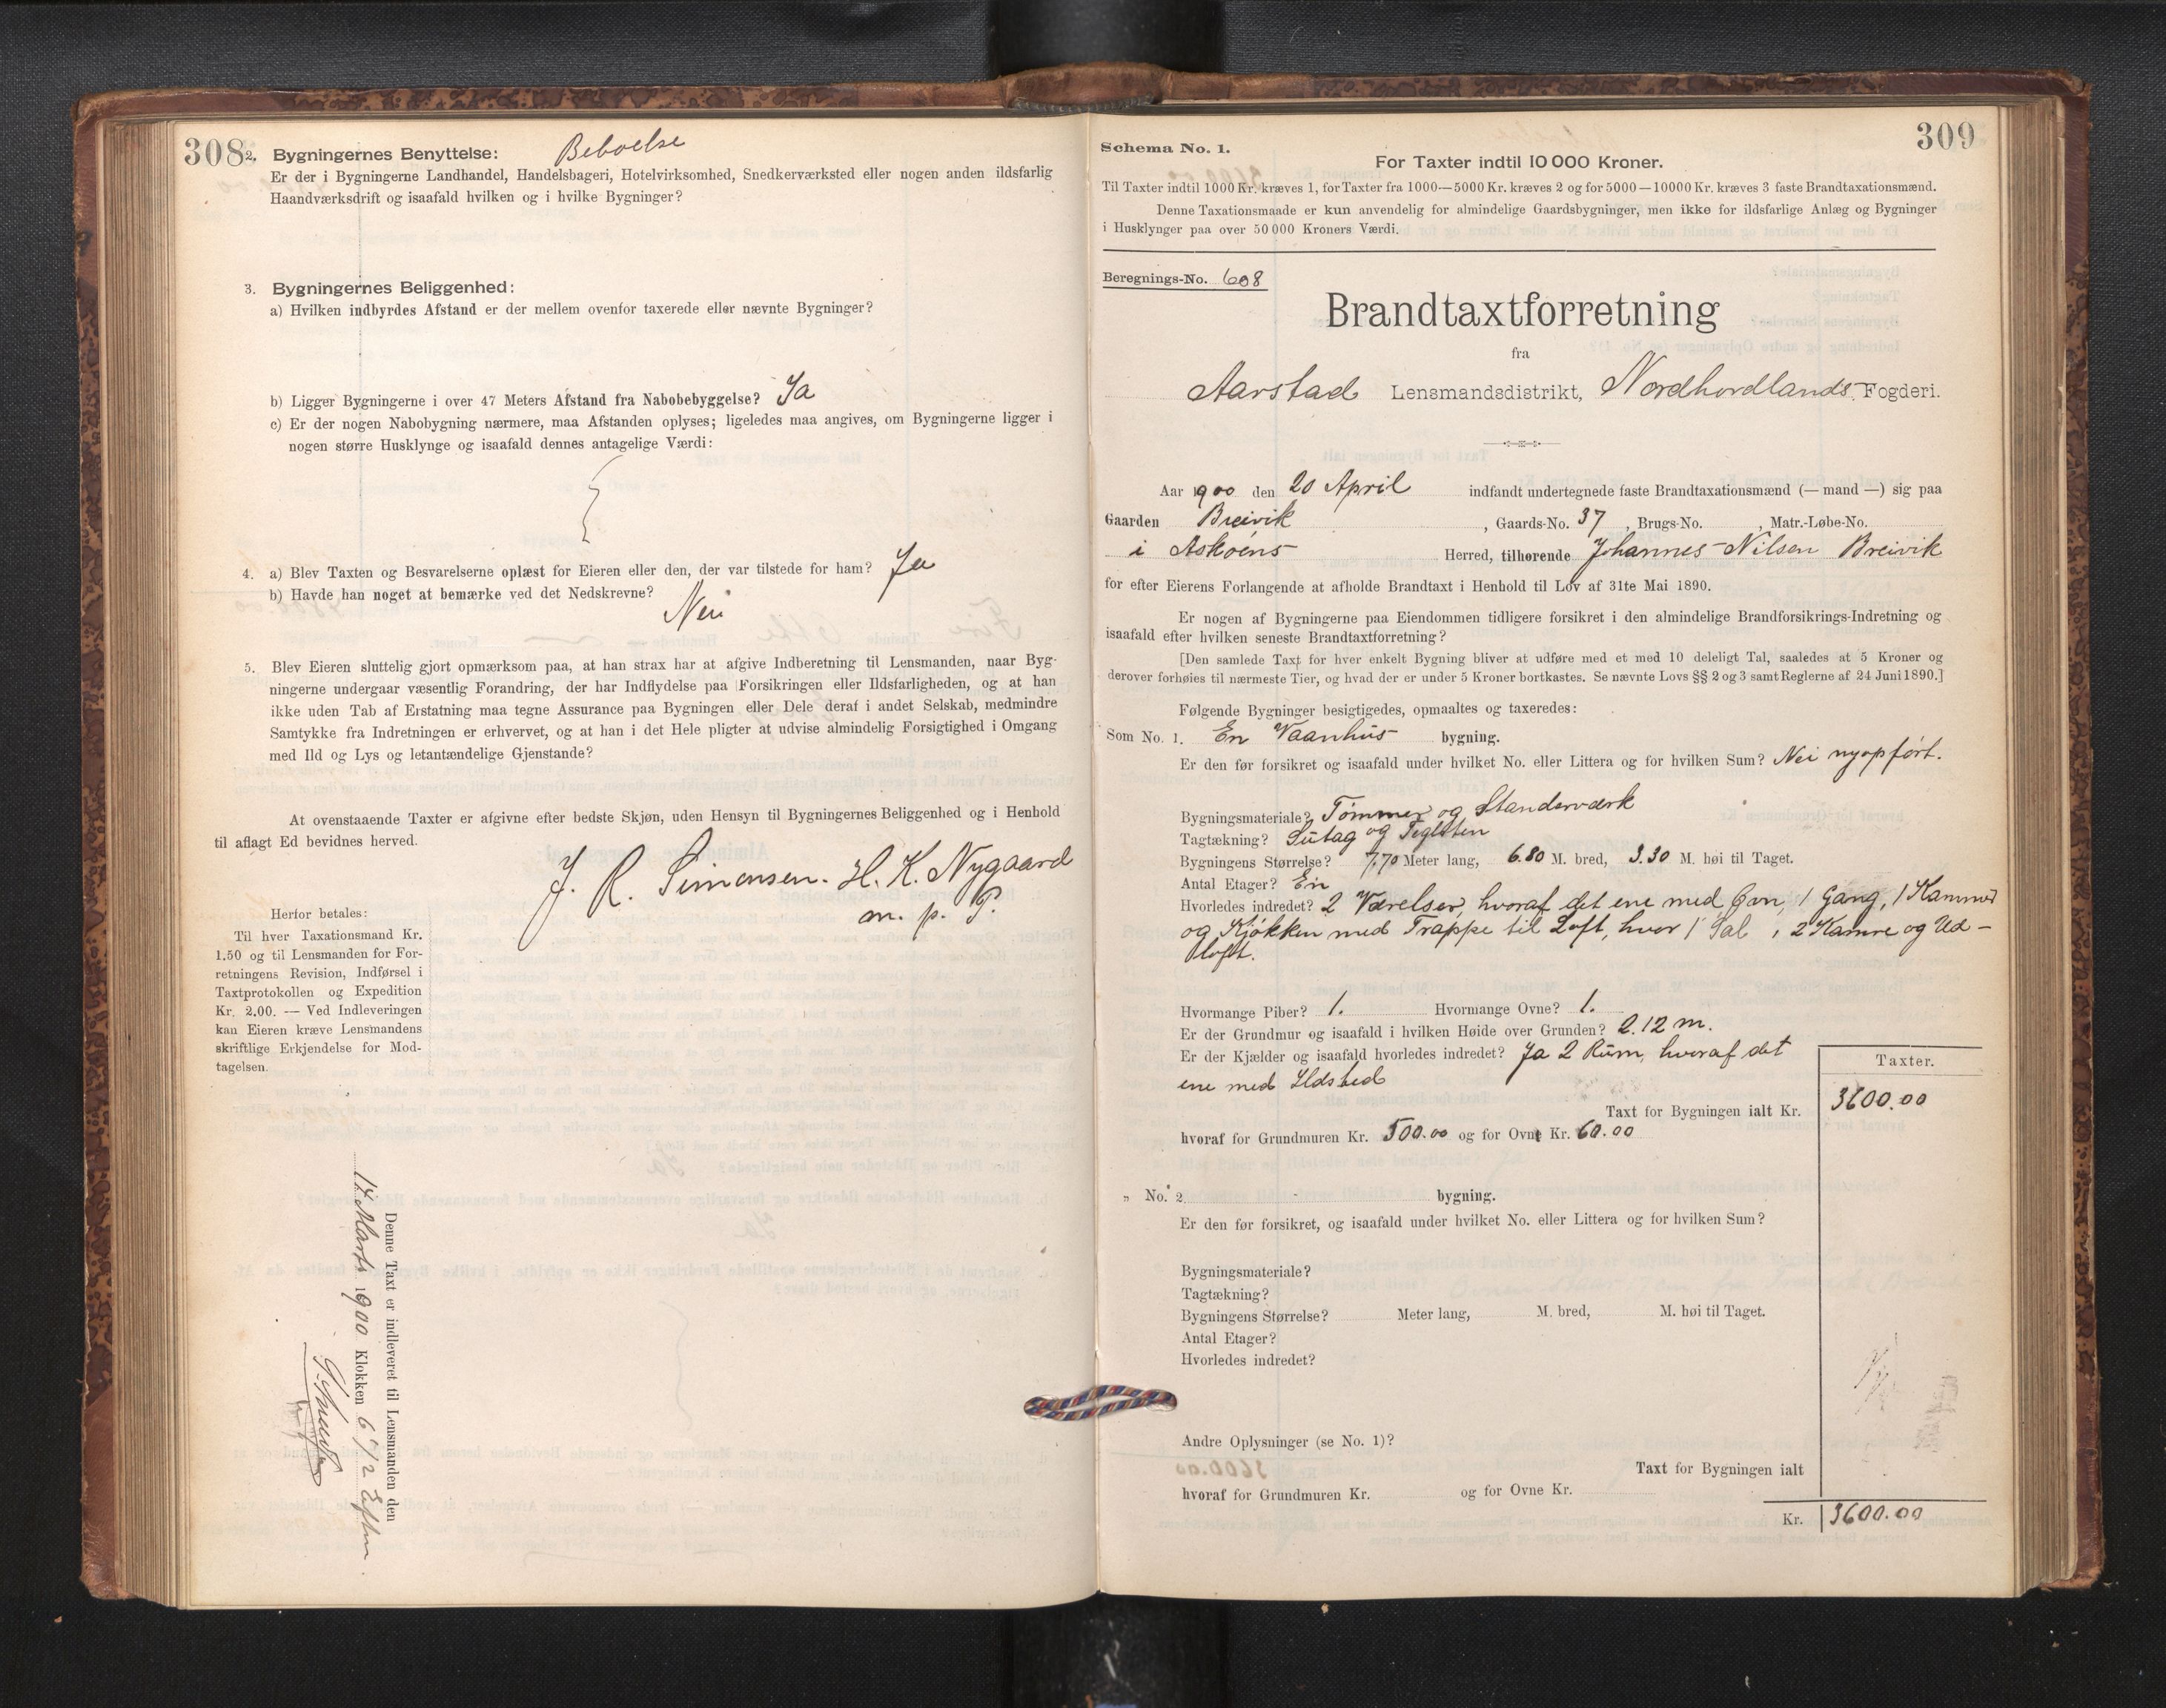 308
2. Bygningernes Benyttelse: Beboelse
Er der i Bygningerne Landhandel, Handelsbageri, Hotelvirksomhed, Snedkerværksted eller nogen anden ildsfarlig
Haandværksdrift og isaafald hvilken og i hvilke Bygninger?
3. Bygningernes Beliggenhed:
a) Hvilken indbyrdes Afstand er der mellem ovenfor taxerede eller nævnte Bygninger?
b) Ligger Bygningerne i over 47 Meters Afstand fra Nabobebyggelse? Ja
c) Er der nogen Nabobygning nærmere, maa Afstanden oplyses; ligeledes maa angives, om Bygningerne ligger i
nogen større Husklynge og isaafald dennes antagelige Værdi:
4. a) Blev Taxten og Besvarelserne oplæst for Eieren eller den, der var tilstede for ham? Ja
b) Havde han noget at bemærke ved det Nedskrevne? Nei
5. Blev Eieren sluttelig gjort opmærksom paa, at han strax har at afgive Indberetning til Lensmanden, naar Byg-
ningerne undergaar væsentlig Forandring, der har Indflydelse paa Forsikringen eller Ildsfarligheden, og at han
ikke uden Tab af Erstatning maa tegne Assurance paa Bygningen eller Dele deraf i andet Selskab, medmindre
Samtykke fra Indretningen er erhvervet, og at han i det Hele pligter at udvise almindelig Forsigtighed i Omgang
med Ild og Lys og letantændelige Gjenstande?
At ovenstaaende Taxter er afgivne efter bedste Skjøn, uden Hensyn til Bygningernes Beliggenhed og i Henhold
til aflagt Ed bevidnes herved.
J. R. Simonsen. H. K. Nygaard
m. p. P.
Herfor betales:
Til hver Taxationsmand Kr.
1.50 og til Lensmanden for For-
retningens Revision, Indførsel i
Taxtprotokollen og Expedition
Kr. 2.00. — Ved Indleveringen
kan Eieren kræve Lensmandens
skriftlige Erkjendelse for Mod-
tagelsen.
Denne Taxt er indleveret til Lensmanden den
14 Marts 1900 Klokken 6 1/2 Efthm
309
Schema No. 1.
For Taxter indtil 10 000 Kroner.
Til Taxter indtil 1000 Kr. kræves 1, for Taxter fra 1000—5000 Kr. kræves 2 og for 5000—10000 Kr. kræves 3 faste Brandtaxationsmænd.
Denne Taxationsmaade er kun anvendelig for almindelige Gaardsbygninger, men ikke for ildsfarlige Anlæg og Bygninger
i Husklynger paa over 50 000 Kroners Værdi.
Beregnings-No. 608
Brandtaxtforretning
fra
Aarstad Lensmandsdistrikt, Nordhordlands Fogderi.
Aar 1900 den 20 April indfandt undertegnede faste Brandtaxationsmænd (— mand —) sig paa
Gaarden Breivik, Gaards-No. 37, Brugs-No. , Matr.-Løbe-No.
i Askøens Herred, tilhørende Johannes Nilsen Breivik
for efter Eierens Forlangende at afholde Brandtaxt i Henhold til Lov af 31te Mai 1890.
Er nogen af Bygningerne paa Eiendommen tidligere forsikret i den almindelige Brandforsikrings-Indretning og
isaafald efter hvilken seneste Brandtaxtforretning?
[Den samlede Taxt for hver enkelt Bygning bliver at udføre med et med 10 deleligt Tal, saaledes at 5 Kroner og
derover forhøies til nærmeste Tier, og hvad der er under 5 Kroner bortkastes. Se nævnte Lovs §§ 2 og 3 samt Reglerne af 24 Juni 1890.]
Følgende Bygninger besigtigedes, opmaaltes og taxeredes:
Som No. 1. En Vaanhus bygning.
Er den før forsikret og isaafald under hvilket No. eller Littera og for hvilken Sum? Nei nyopført.
Bygningsmateriale? Tømmer og Standerværk
Tagtækning? Sutag og Teglsten
Bygningens Størrelse? 7.70 Meter lang, 6.80 M. bred, 3.30 M. høi til Taget.
Antal Etager? En
Hvorledes indredet? 2 Værelser, hvoraf det ene med Ovn, 1 Gang, 1 Kammer
og Kjøkken med Trappe til Loft, hvor 1 Sal, 2 Kamre og Ud-
loft.
Hvormange Piber? 1. Hvormange Ovne? 1.
Er der Grundmur og isaafald i hvilken Høide over Grunden? 2.12 m.
Er der Kjælder og isaafald hvorledes indredet? Ja 2 Rum, hvoraf det
ene med Ildsted
Taxter.
Taxt for Bygningen ialt Kr. 3600.00
hvoraf for Grundmuren Kr. 500.00 og for Ovne Kr. 60.00
„ No. 2 bygning.
Er den før forsikret, og isaafald under hvilket No. eller Littera og for hvilken Sum?
Bygningsmateriale?
Tagtækning?
Bygningens Størrelse? Meter lang, M. bred, M. høi til Taget.
Antal Etager?
Hvorledes indredet?
Andre Oplysninger (se No. 1)?
Taxt for Bygningen ialt
hvoraf for Grundmuren Kr. og for Ovne Kr.
Kr. 3600.00